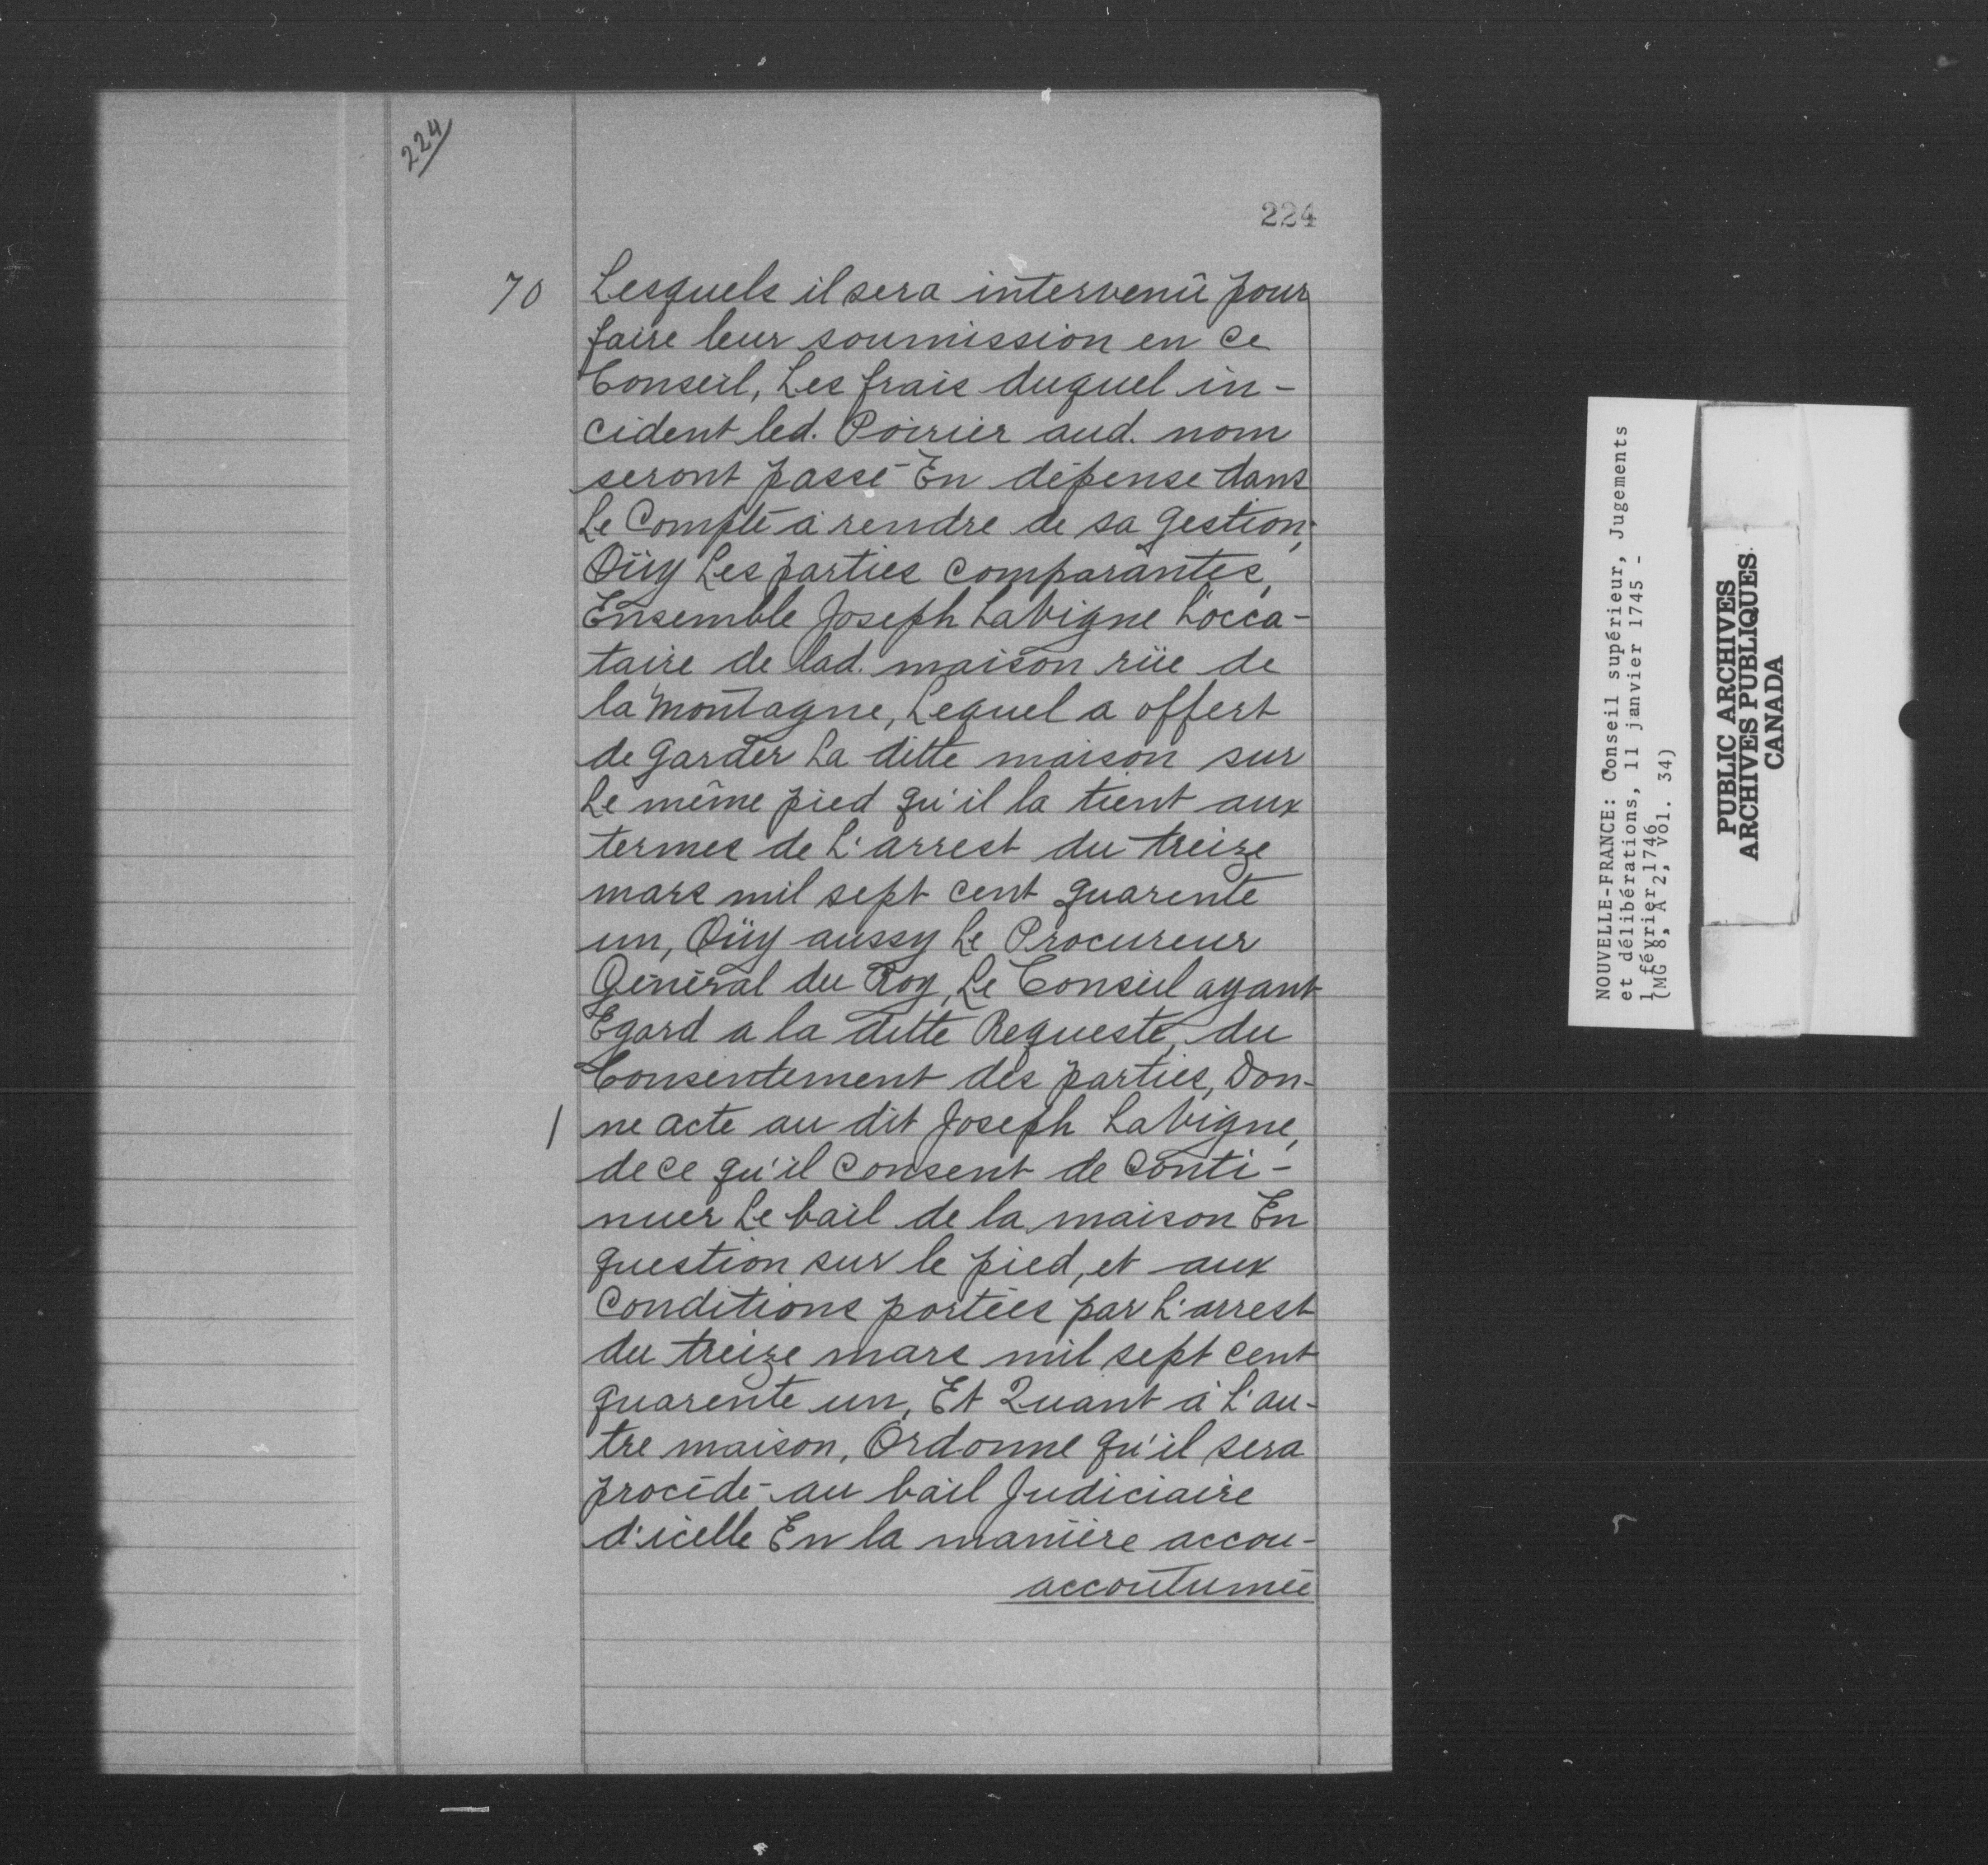 224
224
70
Lesquels il sera intervenû pour
faire leur soumission en ce
Conseil, Les frais duquel in-
cident led. Poirier aud. nom
seront passé En dépense dans
Le Compte à rendre de sa gestion;
Oüy Les parties comparantes,
Ensemble Joseph LaVigne Locca-
taire de lad. maison rüe de
la Montagne, Lequel a offert
de garder La ditte maison sur
Le même pied qu'il la tient aux
termes de L'arrest du treize
mars mil sept cent quarente
un, Oüy aussy Le Procureur
Général du Roy, Le Conseil ayant
Egard a la ditte Requeste, du
Consentement des parties, Don-
/ ne acte au dit Joseph LaVigne,
de ce qu'il Consent de Conti-
nuer Le bail de la maison En
question sur le pied, et aux
Conditions portées par L'arrest
du treize mars mil sept cent
quarente un, Et Quant à L'au-
tre maison, Ordonne qu'il sera
procédé au bail Judiciaire
d'icelle En la manière accou-
accoutumée
NOUVELLE-FRANCE: Conseil supérieur, Jugements
et délibérations, 11 janvier 1745 -
1 février 1746
(MG 8, A 2, vol. 34)
PUBLIC ARCHIVES
ARCHIVES PUBLIQUES
CANADA